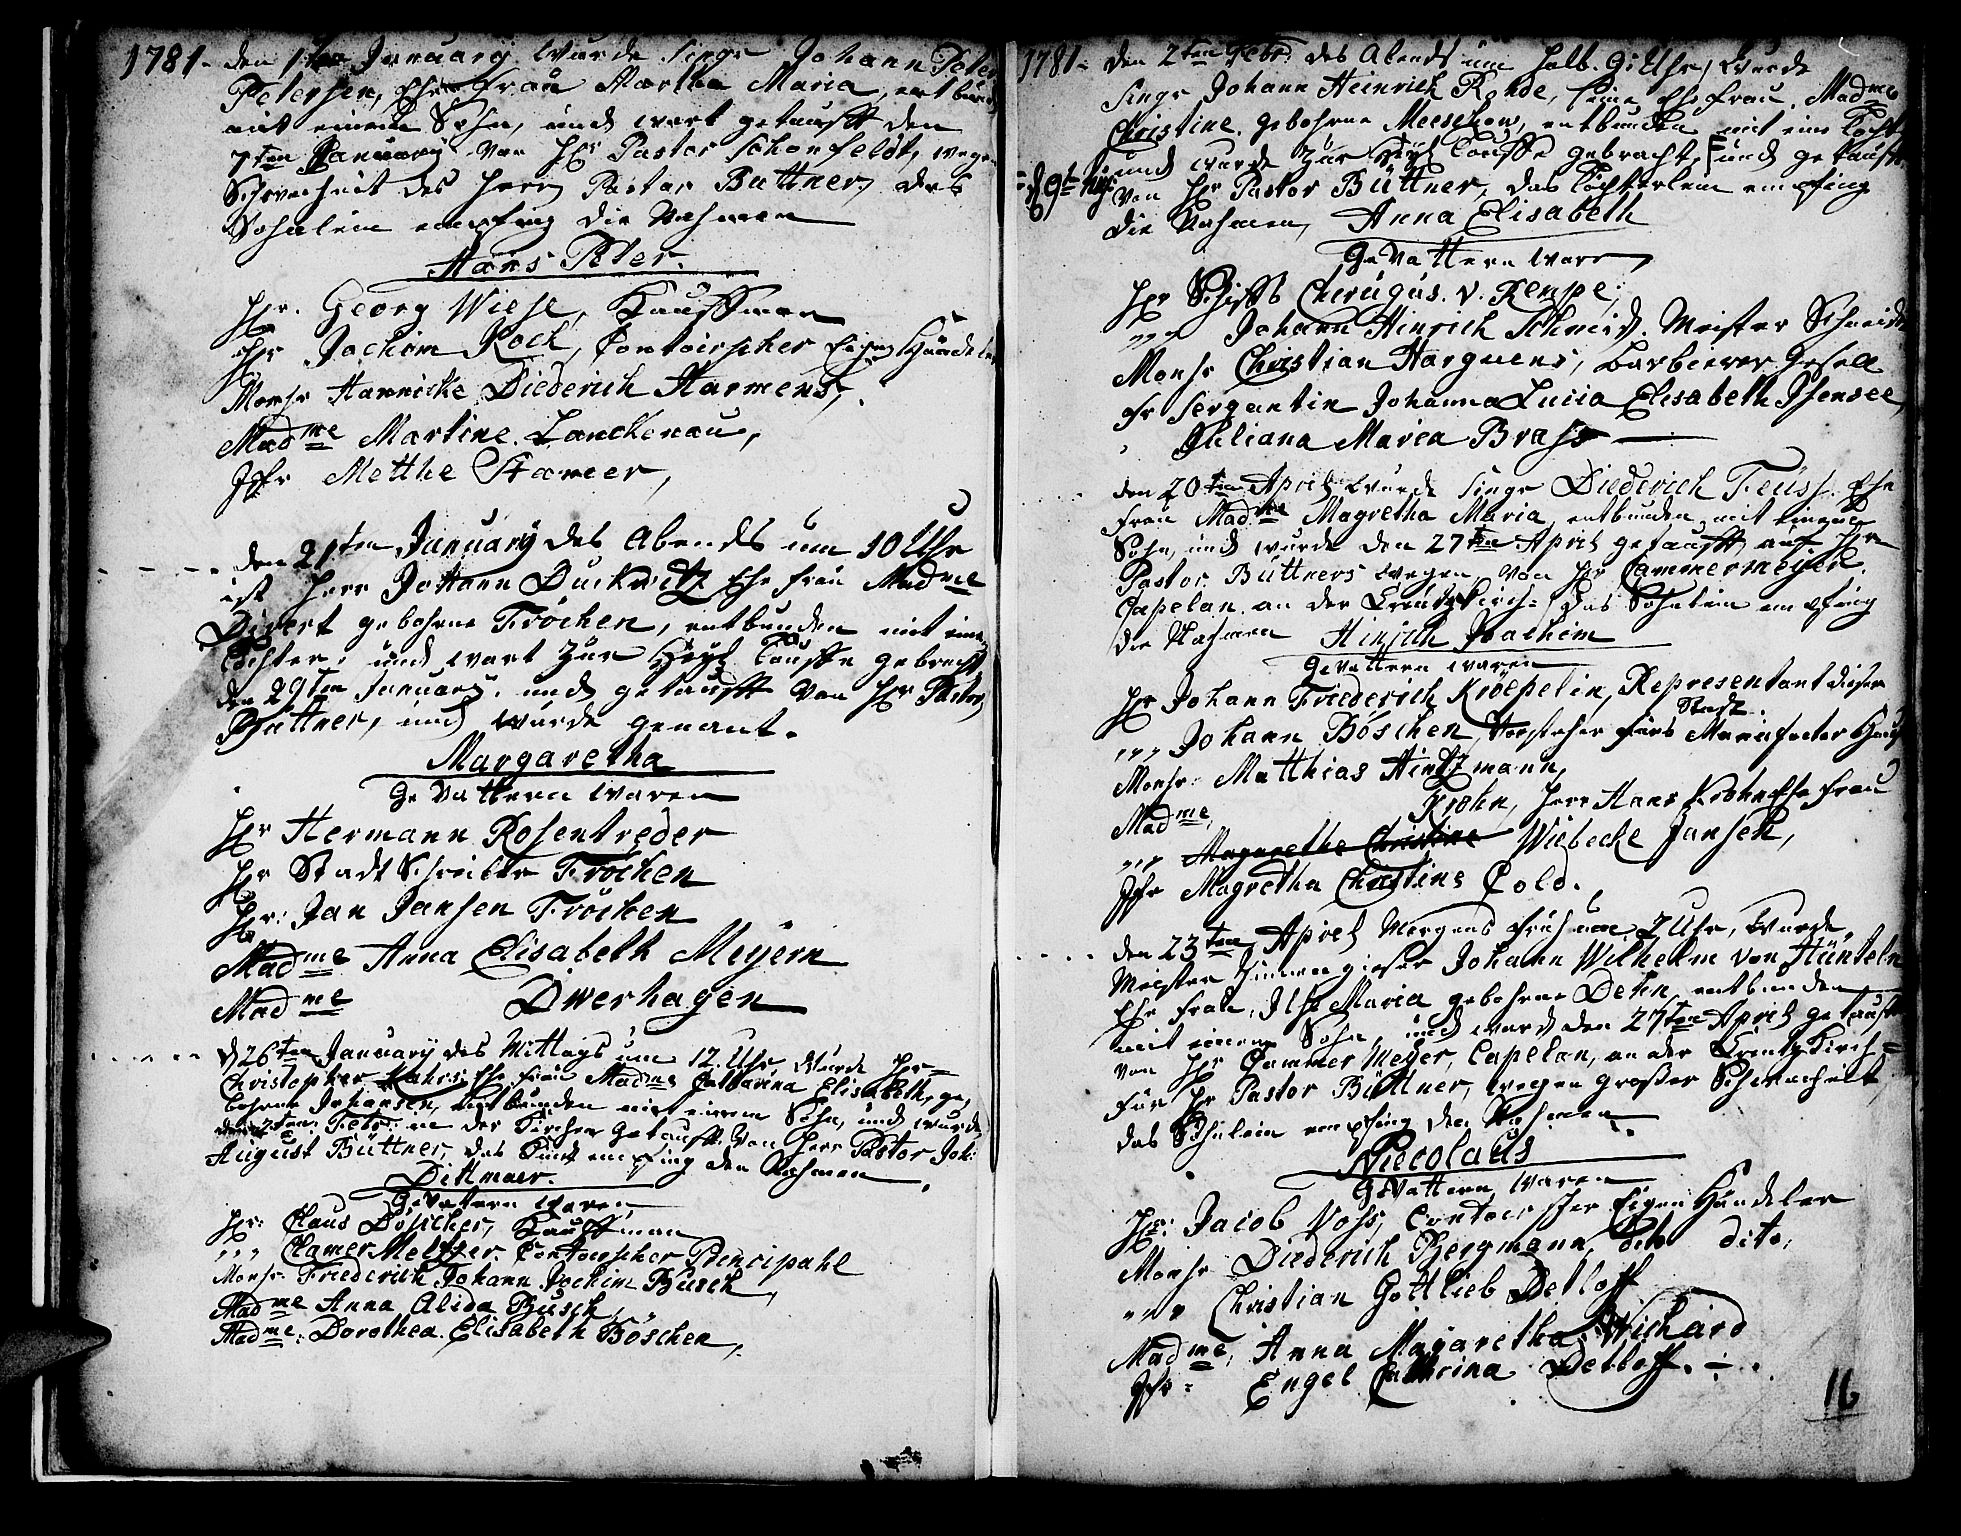 1781. den 1ten January wurde Singr Johann Peter
Petersen, Ehe Frau Martha Maria, entbund
mit einem Sohn, und wart getaufft den
7ten January von Hr Pastor Schonfeldt, wegen
Schwacheit des Herrn Pastor Buttner, das
Sohnlein empfing die Nahmen
Hans Peter.
Hr. Georg Wiese, Kauffman
Hr Jochim Kock, Contoirscher Eigen Händeler
Monsr Hannicke Diederich Harmens,
Madme Martine Lanckenau,
Jfr Metthe Stameer,
den 21ten January des Abends um 10 Uhr
ist Herr Johann Duckwitz Ehe Frau Madme
Divert gebohrne Fröchen, entbunden mit eine
Tochter, und wart zur Heyl Tauffe gebracht
den 29ten January, und getaufft von Hr Pastor
Buttner, und wurde genant.
Margaretha
Gevattern waren
Hr Hermann Rosentreder
Hr Stadt Schreiber Fröchen
Hr. Jan Jansen Fröchen
Madme Anna Elisabeth Meyern
Madme Dwerhagen
d 26ten January des Mittags um 12 Uhr wurde Hr
Christopher Kahrs Ehe Frau Madme Catharina Elisabeth, ge,
bohrne Johansen, entbunden mit einem Sohn, und wurde
den 2ten Febr. in der Kirchen getaufft von Herr Pastor Joh:
August Büttner, das Kind empfing den Nahmen
Dittmaer.
Gevattern waren
Hr. Claus Döscher, Kauffman
,,, Clamer Meltzer, Contoirscher Principahl
Monsr. Friederich Johann Jochim Busch,
Madme Anna Alida Busch,
Madme. Dorothea Elisabeth Böschen,
1781. den 2ten Febr. des Abends um halb 9 Uhr, wurde
Singr Johann Heinrich Rohde, seine Ehe Frau, Madme
Christine, gebohrne Meeschow, entbunden mit eine Tocht
und wurde zur Heyl Tauffe gebracht, und getaufft
d 9t
von Hr Pastor Büttner, das Töchterlein empfing
die Nahmen, Anna Elisabeth
Gevattern waren
Hr Schiffs Cherugus. v. Kempe,
,,, Johann Hinrich Schmid, Meister Schneider
Monsr Christian Harguens, Barbierer Gesell
Fr Sergantin Johanna Lucia Elisabeth Isensee,
Juliana Maria Brass
den 20ten April wurde Singr Diederich Feuss Ehe
Frau Madme Magretha Maria entbunden mit einem
Sohn, und wurde den 27ten April getaufft auf Hr
Pastor Büttners wegen, von Hr Cammermeyer
Capelan an der Creutzkirch, das Sohnlein empfing
die Nahmen Hinrich Joachim
Gevattern waren
Hr Johann Friederich Kröepelin, Representant dieser
Stadt.
,,, Johann Böschen, Vorsteher fürs Manufacter Haus
Monsr. Matthias Hintzmann,
Madme, Krohn, Herr Hans Krohn Ehe Frau
,,, Magaretha Christine Wiebecke Jansen,
Jfr Magretha Christine Cold.
den 23ten April Morgens früh um 2 Uhr, wurde
Meister Zinnengieser Johann Wilhelm von Hünteln
Ehe Frau, Ilse Maria gebohrne Dehn, entbunden
mit einem Sohn, und ward den 27ten April getauft
von Hr Cammer Meyer, Capelan, an der Creutz Kirch=
für Hr Pastor Büttner, wegen großer Schwacheit,
das Söhnlein empfing den Nahmen
Niecolaus
Gevattern waren
Hr. Jacob Voss, Contoirscher Eigen Händeler
Monsr Diederich Bergmann, dito dito,
,,, Christian Gottlieb Detloff
Madme, Anna Magaretha Wichard
Jfr. Engel Cathrina Detloff.
16